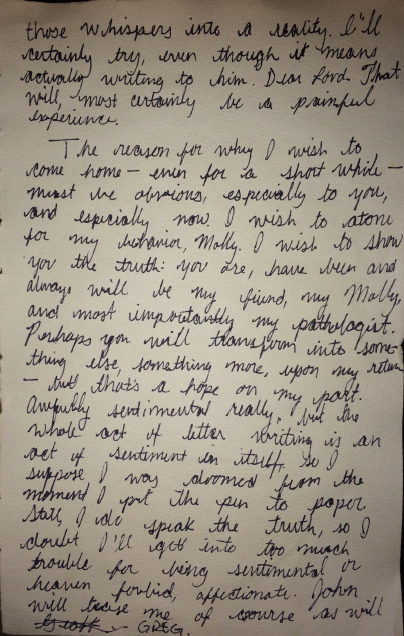 those whispers into a reality. I'll
certainly try, even though it means
actually writing to him. Dear Lord. That
will, most certainly be a painful
experience.
The reason for why I wish to
come home – even for a short while –
must be obvious, especially to you,
and especially now. I wish to atone
for my behavior, Molly. I wish to show
you the truth: you are, have been and
always will be my friend, my Molly,
and most importantly my pathologist.
Perhaps you will transform into some-
thing else, something more, upon my return
– but that's a hope on my part.
Awfully sentimental really, but the
whole act of letter writing is an
act of sentiment in itself, so I
suppose I was doomed from the
moment I put the pen to paper.
Still, I do speak the truth, so I
doubt I'll get into too much
trouble for being sentimental or
heaven forbid, affectionate. John
will tease me of course as will
GREG.